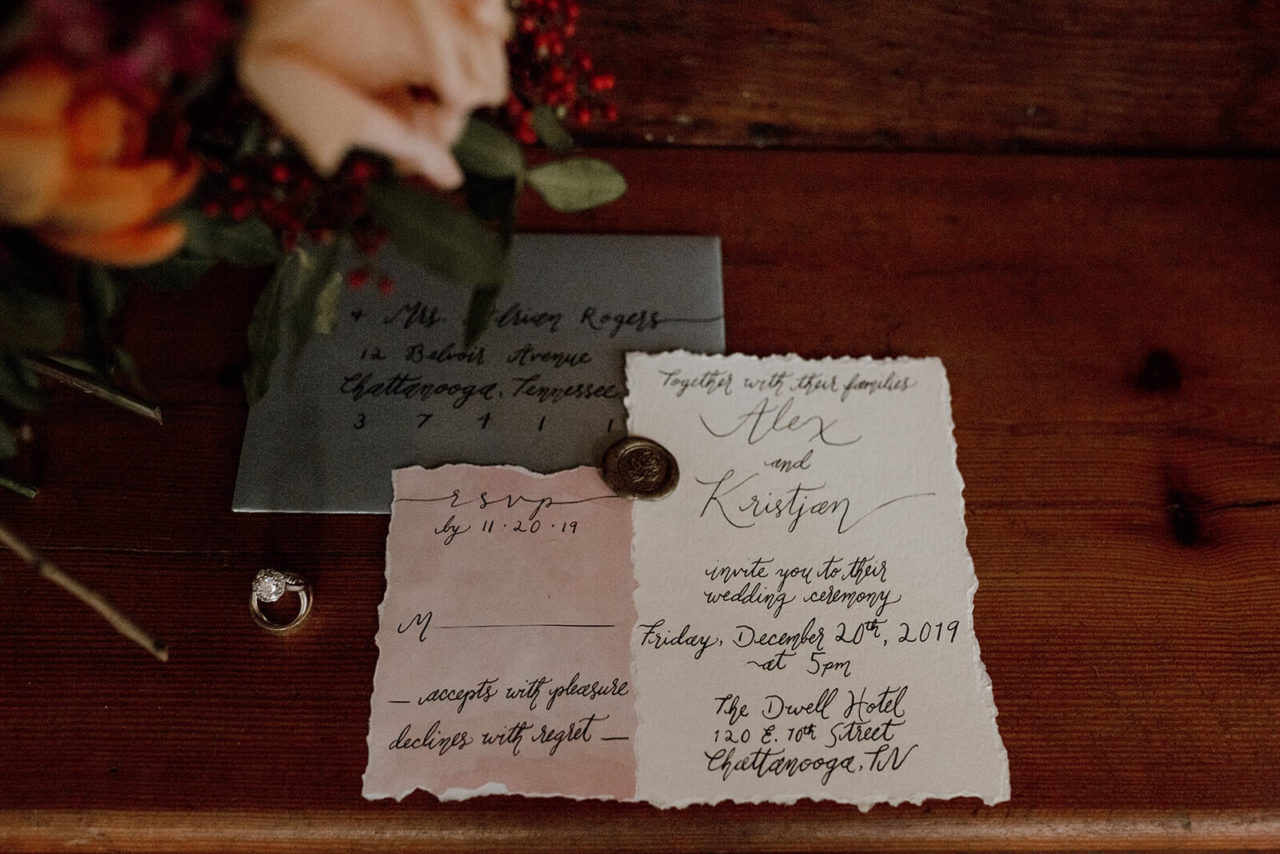 + Mrs. Rogers
12 Belvoir Avenue
Chattanooga, Tennessee
3 7 4 1 1
Together with their families
Alex
and
Kristjan
invite you to their
wedding ceremony
Friday, December 20th, 2019
at 5pm
The Dwell Hotel
120 E. 10th Street
Chattanooga, TN
rsvp
by 11·20·19
M
accepts with pleasure
declines with regret